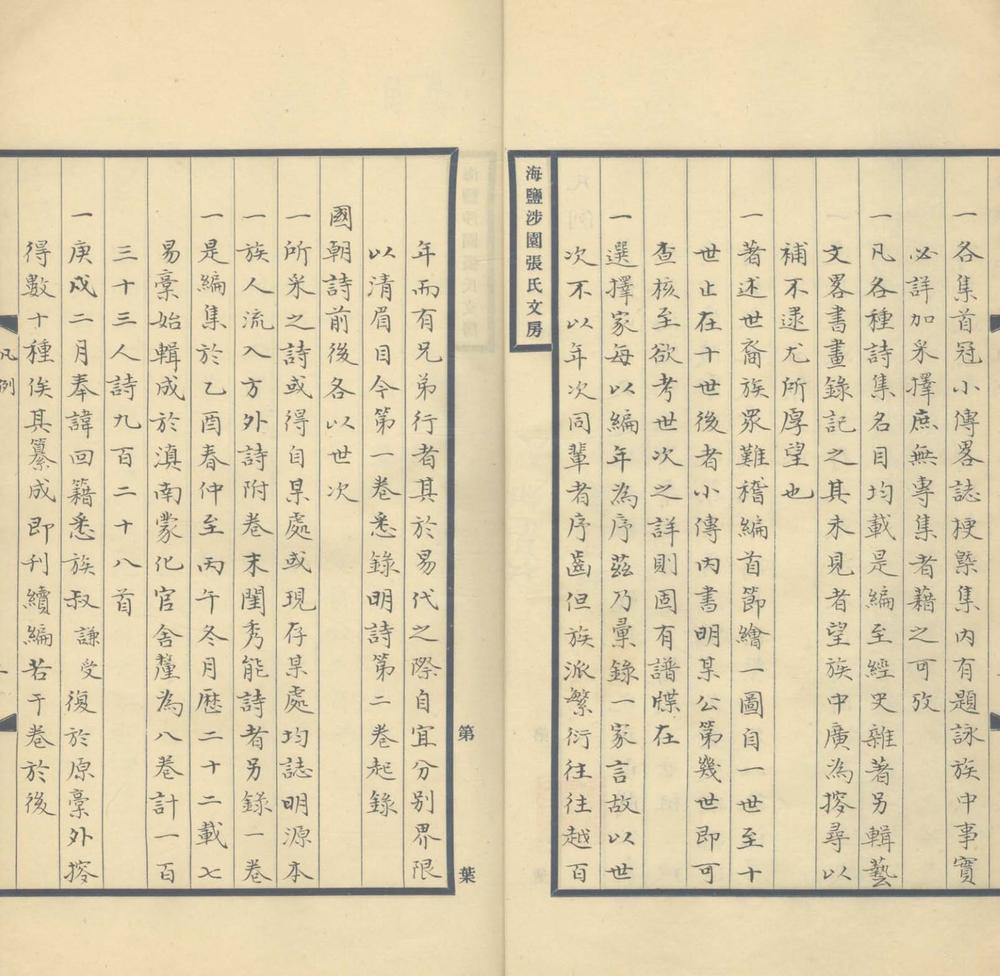 一各集首冠小傳畧誌梗槩集內有題詠族中事實
必詳加采擇庶無專集者藉之可攷
一凡各種詩集名目均載是編至經史雜著另輯藝
文畧書畫錄記之其未見者望族中廣為搜尋以
補不逮尤所厚望也
一著述世裔族眾難稽編首節繪一圖自一世至十
世止在十世後者小傳內書明某公第幾世即可
查核至欲考世次之詳則固有譜牒在
一選擇家每以編年為序茲乃彙錄一家言故以世
次不以年次同輩者序齒但族派繁衍往往越百
海鹽涉園張氏文房
第 葉
年而有兄弟行者其於易代之際自宜分別界限
以清眉目今第一卷悉錄明詩第二卷起錄
國朝詩前後各以世次
一所采之詩或得自某處或現存某處均誌明源本
一族人流入方外詩附卷末閨秀能詩者另錄一卷
一是編集於乙酉春仲至丙午冬月歷二十二載七
易稾始輯成於滇南蒙化官舍釐為八卷計一百
三十三人詩九百二十八首
一庚戍二月奉諱回籍悉族叔謙受復於原稾外搜
得數十種俟其纂成即刊續編若干卷於後
凡例